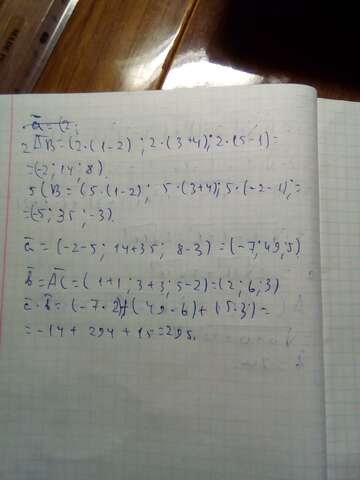 a̅ = (2;
2A̅B̅ = (2·(1-2) ; 2·(3+4); 2·(5-1) =
= (-2; 14; 8).
5CB = (5·(1-2); 5·(3+4); 5·(-2-1); =
= (-5; 35; -3).
a̅ = (-2-5; 14+35; 8-3) = (-7; 49; 5)
b̅ = A̅C̅ = (1+1; 3+3; 5-2) = (2; 6; 3)
a̅·b̅ = (-7·2)+(49·6)+(5·3) =
= -14 + 294 + 15 = 295.